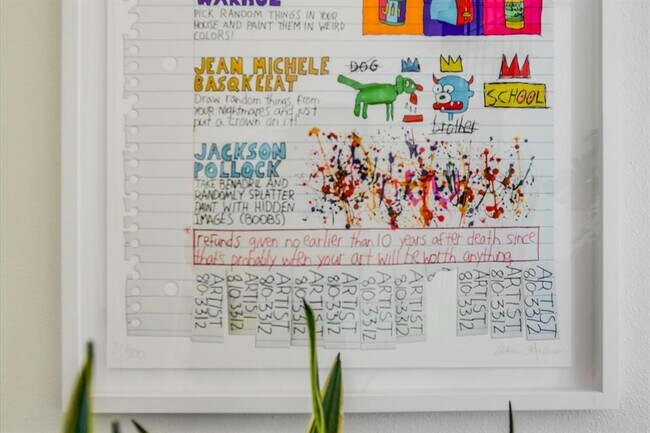 WARHOL
PICK RANDOM THINGS IN YOUR
HOUSE AND PAINT THEM IN WEIRD
COLORS!
JEAN MICHELE
BASQKEEAT
Draw random things from
your nightmares and just
put a crown on it!
DOG
brother
SCHOOL
JACKSON
POLLOCK
TAKE BENADRIL AND
RANDOMLY SPLATTER
PAINT WITH HIDDEN
IMAGES (BOOBS)
* refunds given no earlier than 10 years after death since
that's probably when your art will be worth anything
ARTIST
810-3312
ARTIST
810-3312
ARTIST
810-3312
ARTIST
810-3312
ARTIST
810-3312
ARTIST
810-3312
ARTIST
810-3312
ARTIST
810-3312
ARTIST
810-3312
ARTIST
810-3312